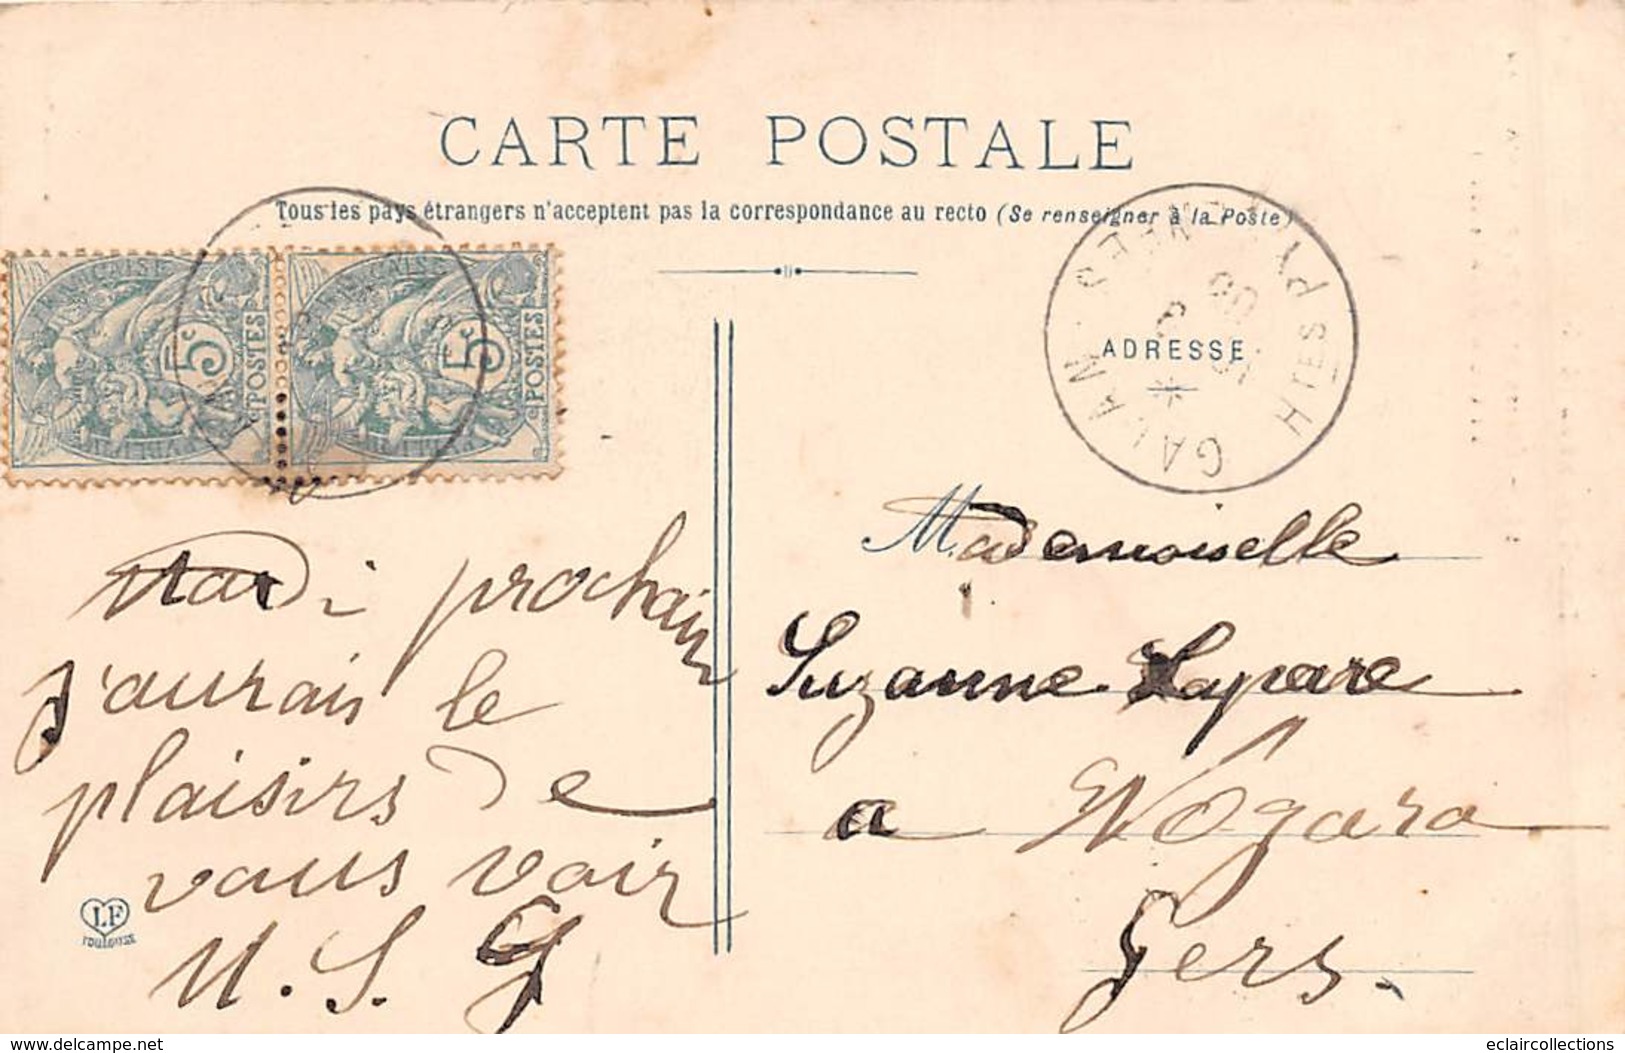 CARTE POSTALE
Tous les pays étrangers n'acceptent pas la correspondance au recto (Se renseigner à la Poste)
5c POSTES
5c POSTES
GALAN HTES PYRENEES
ADRESSE
Mardi prochain
j'aurais le
plaisirs de
vous voir
M. S. G
LF
TOULOUSE
Mademoiselle
Suzanne Lapare
a Nogaro
Gers.
www.delcampe.net
eclaircollections